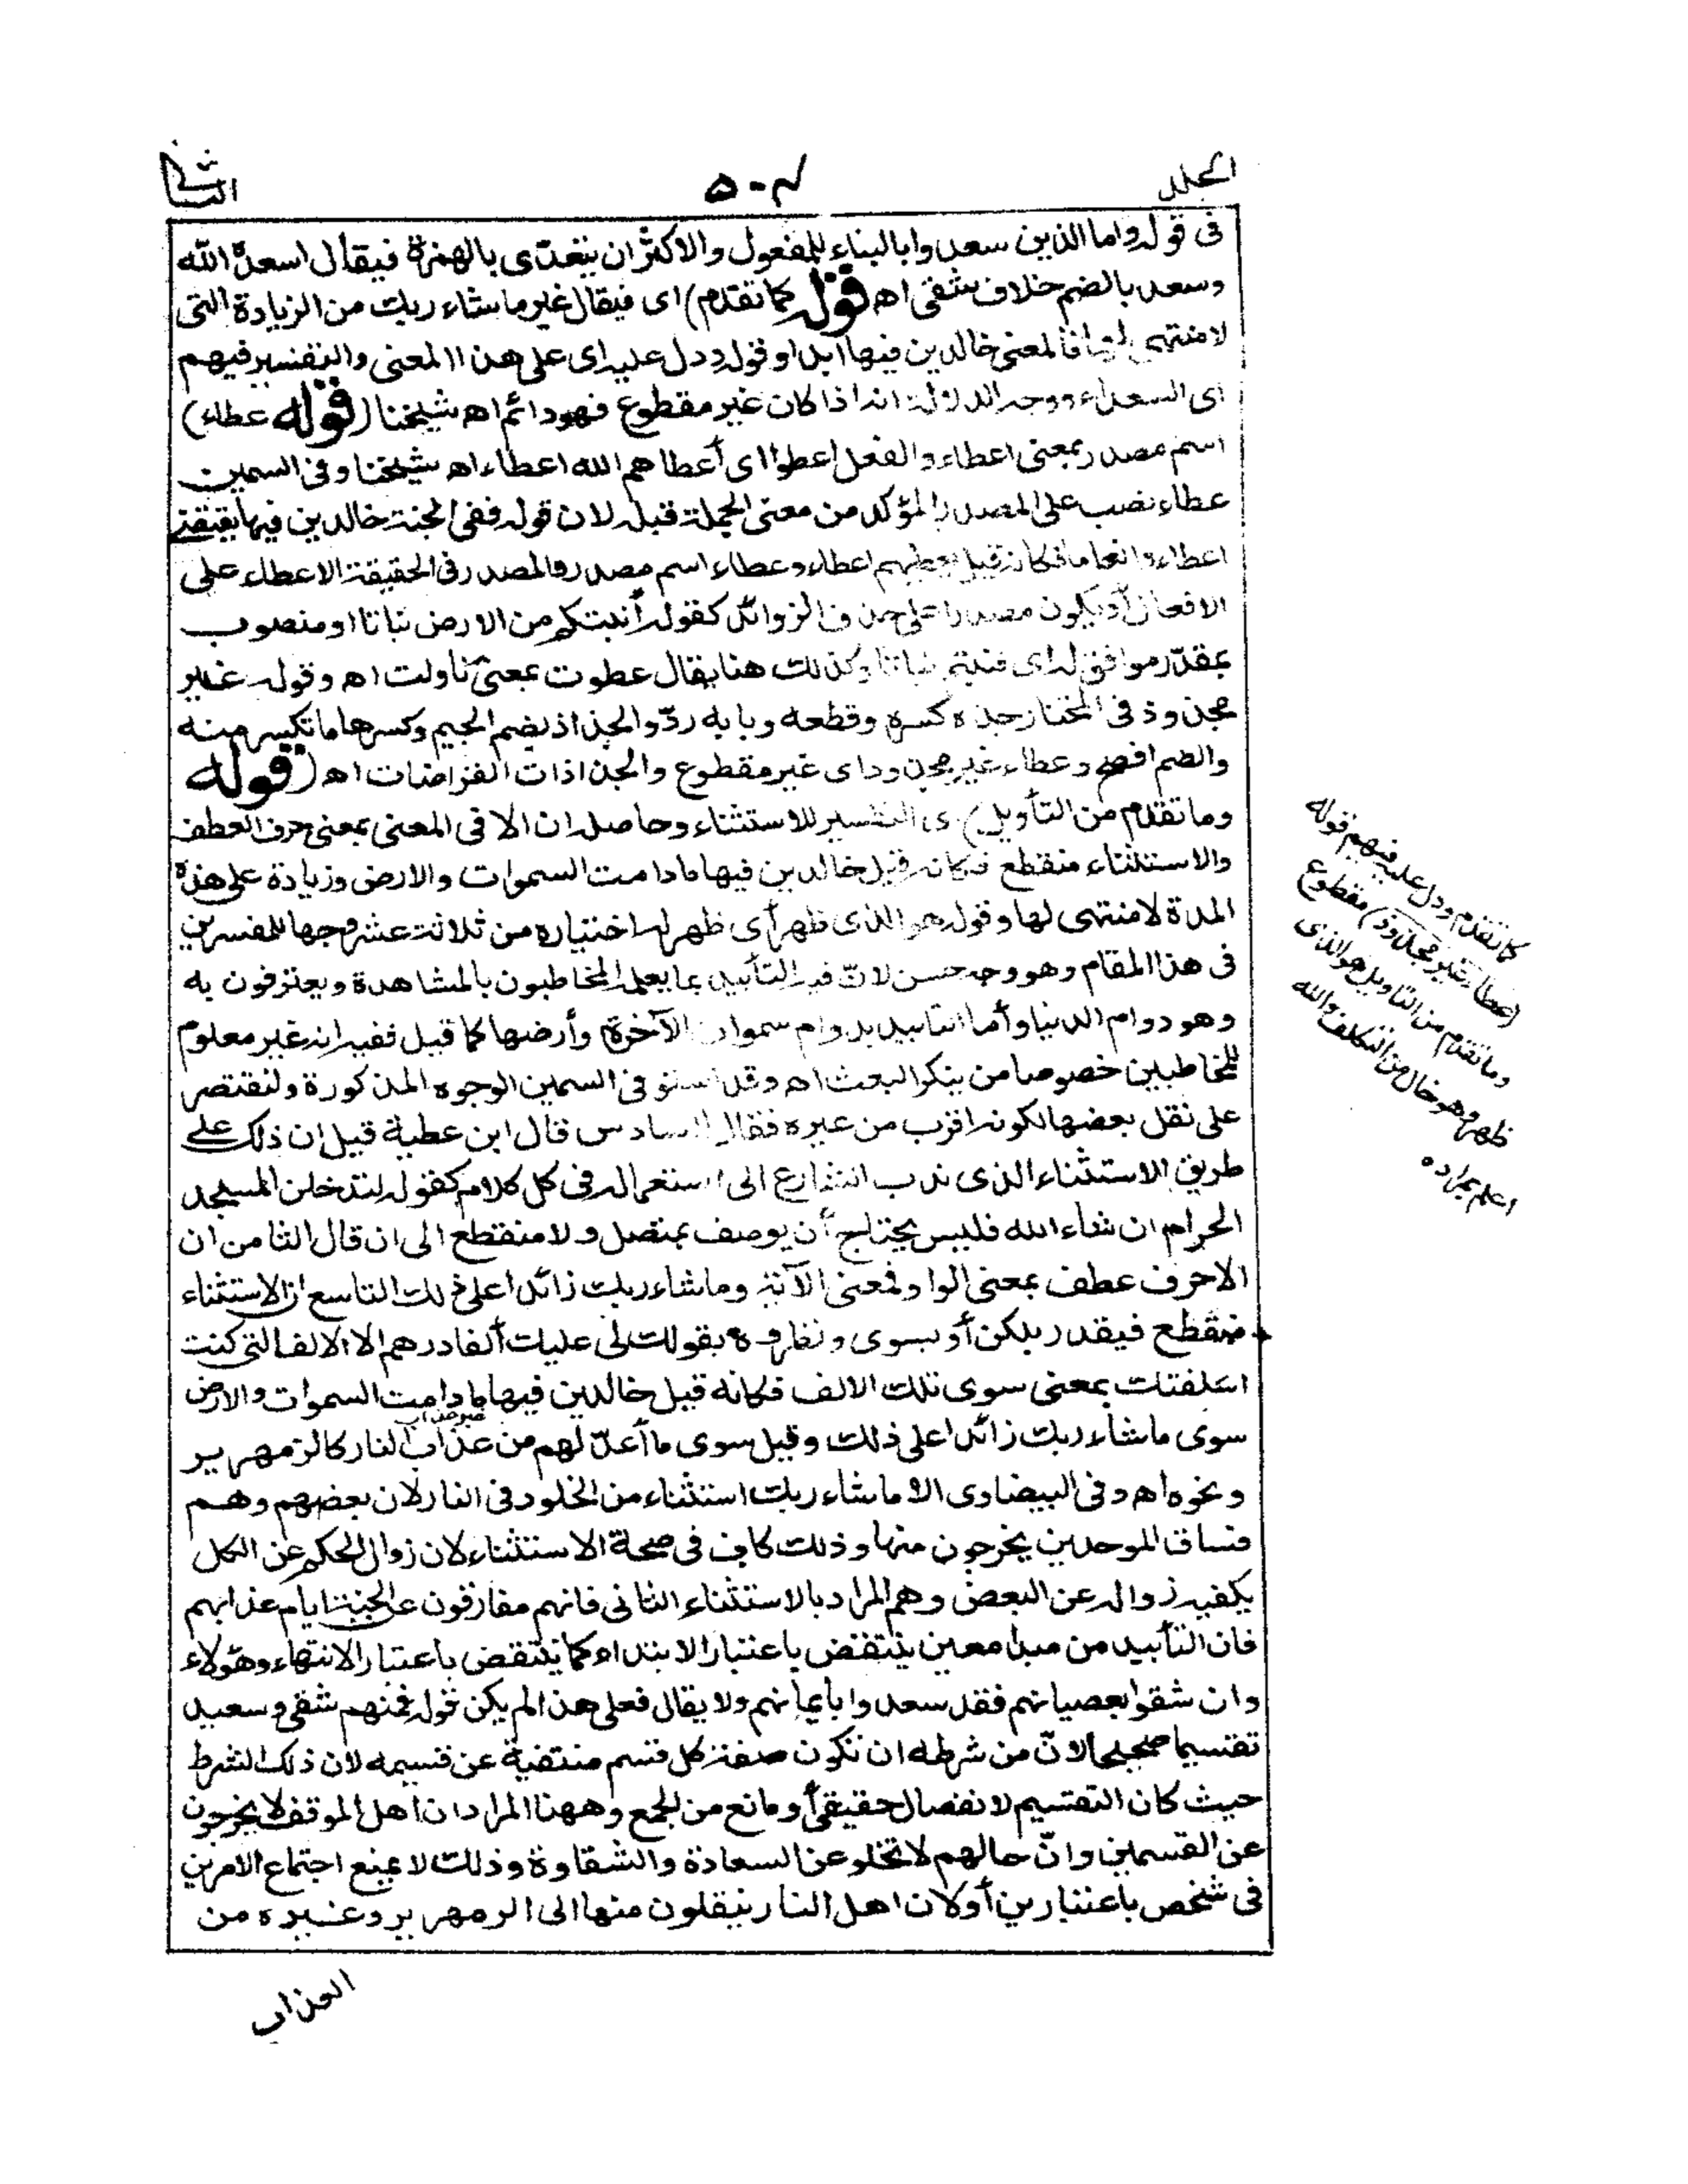 المجلد
٥٠٢
الثاني
فى قوله واما الذين سعدوا بالبناء للمفعول والاكثر ان يتعدّى بالهمزة فيقال اسعده الله
وسعد بالضم خلاف شقى اه قوله كما تقدم) اى فيقال غير ما شاء ربك من الزيادة التى
لا منتهى لها فالمعنى خالدين فيها ابدا وقوله ودل عليه اى على هذا المعنى والتفسير فيهم
اى السعداء ووجه الدلالة انه اذا كان غير مقطوع فهو دائم اه شيخنا (قوله عطاء)
اسم مصدر بمعنى اعطاء والفعل اعطوا اى أعطاهم الله اعطاء اه شيخنا وفى السمين
عطاء نصب على المصدر المؤكد من معنى الجملة قبله لان قوله ففى الجنة خالدين فيها يقتضى
اعطاء وانعاما فكانه قيل يعطيهم اعطاء وعطاء اسم مصدر والمصدر فى الحقيقة الاعطاء على
الافعال أو يكون مصدرا على حذف الزوائد كقوله أنبتكم من الارض نباتا او منصوب
بمقدّر موافق له اى فنبتم نباتا وكذلك هنا يقال عطوت بمعنى ناولت اه وقوله غير
مجذوذ فى المختار جذه كسره وقطعه وبابه ردّ والجذاذ بضم الجيم وكسرها ما تكسر منه
والضم افصح وعطاء غير مجذوذ اى غير مقطوع والجذاذات القراضات اه (قوله
وما تقدم من التأويل) اى التفسير للاستثناء وحاصله ان الا فى المعنى بمعنى حرف العطف
والاستثناء منقطع فكانه قيل خالدين فيها ما دامت السموات والارض وزيادة على هذه
المدة لا منتهى لها وقوله هو الذى ظهر أى ظهر له اختياره من ثلاثة عشر وجها للمفسرين
فى هذا المقام وهو وجه حسن لانّ فيه التأبيد بما يعلم المخاطبون بالمشاهدة ويعترفون به
وهو دوام الدنيا وأما التأبيد بدوام سموات الآخرة وأرضها كما قيل ففيه انه غير معلوم
للمخاطبين خصوصا من ينكر البعث اه وقد استوفى السمين الوجوه المذكورة ولنقتصر
على نقل بعضها لكونه اقرب من غيره فقال السادس قال ابن عطية قيل ان ذلك على
طريق الاستثناء الذى ندب الشارع الى استعماله فى كل كلام كقوله لتدخلن المسجد
الحرام ان شاء الله فليس يحتاج أن يوصف بمتصل ولا منقطع الى ان قال الثامن ان
الا حرف عطف بمعنى الواو فمعنى الآية وما شاء ربك زائدا على ذلك التاسع ان الاستثناء
منقطع فيقدر بلكن أو بسوى ونظروه بقولك لى عليك ألفا درهم الا الالف التى كنت
اسلفتك بمعنى سوى تلك الالف فكانه قيل خالدين فيها ما دامت السموات والارض
سوى ما شاء ربك زائدا على ذلك وقيل سوى ما أعدّ لهم من عذاب غير عذاب النار كالزمهرير
ونحوه اه وفى البيضاوى الا ما شاء ربك استثناء من الخلود فى النار لان بعضهم وهم
فساق الموحدين يخرجون منها وذلك كاف فى صحة الاستثناء لان زوال الحكم عن الكل
يكفيه زواله عن البعض وهم المراد بالاستثناء الثانى فانهم مفارقون عن الجنة ايام عذابهم
فان التأبيد من مبدأ معين ينتقض باعتبار الابتداء كما ينتقض باعتبار الانتهاء وهؤلاء
وان شقوا بعصيانهم فقد سعدوا بايمانهم ولا يقال فعلى هذا لم يكن قوله فمنهم شقى وسعيد
تقسيما صحيحا لانّ من شرطه ان تكون صفة كل قسم منتفية عن قسيمه لان ذلك الشرط
حيث كان التقسيم لانفصال حقيقى أو مانع من الجمع وههنا المراد ان اهل الموقف لا يخرجون
عن القسمين وانّ حالهم لا تخلو عن السعادة والشقاوة وذلك لا يمنع اجتماع الامرين
فى شخص باعتبارين أو لان اهل النار ينقلون منها الى الزمهرير وغيره من
العذاب
كما تقدم ودل عليه فيهم قوله
(عطاء غير مجذوذ) مقطوع
وما تقدم من التاويل هو الذى
ظهر وهو خال من التكلف والله
اعلم بمراده